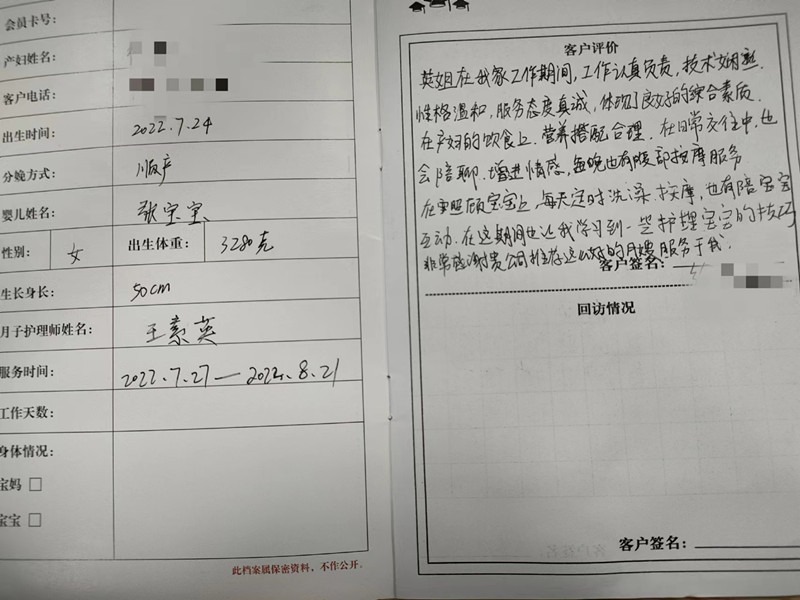 会员卡号：
产妇姓名：
客户电话：
出生时间： 2022.7.24
分娩方式： 顺产
婴儿姓名： 张宝宝
性别： 女 出生体重： 3280克
生长身长： 50cm
月子护理师姓名： 王素英
服务时间： 2022.7.27—2022.8.21
工作天数：
身体情况：
宝妈 □
宝宝 □
此档案属保密资料，不作公开。
客户评价
英姐在我家工作期间，工作认真负责，技术娴熟.
性格温和，服务态度真诚，体现了良好的综合素质.
在产妇的饮食上.营养搭配合理.在日常交往中，也
会陪聊.增进情感，每晚也有腹部按摩服务
在照顾宝宝上，每天定时洗澡.按摩，也有陪宝宝
互动.在这期间也让我学习到一些护理宝宝的技巧
非常感谢贵公司推荐这么好的月嫂服务于我.
客户签名：
回访情况
客户签名：